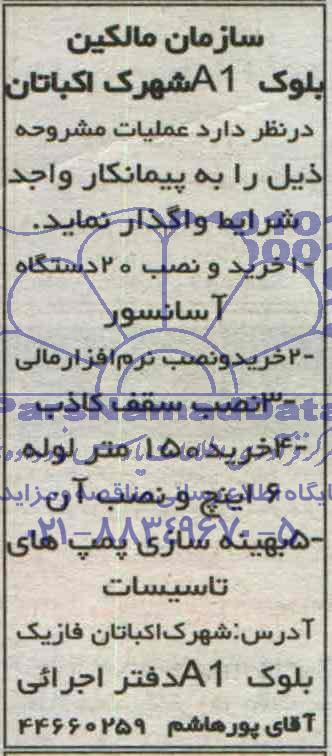 سازمان مالکین
بلوک A1 شهرک اکباتان
درنظر دارد عملیات مشروحه
ذیل را به پیمانکار واجد
شرایط واگذار نماید.
۱-خرید و نصب ۲۰دستگاه
آسانسور
۲-خریدونصب نرم‌افزارمالی
۳-نصب سقف کاذب
۴-خرید۱۵۰ متر لوله
۶ اینچ و نصب آن
۵-بهینه سازی پمپ های
تاسیسات
آدرس:شهرک‌اکباتان فازیک
بلوک A1 دفتر اجرائی
آقای پورهاشم ۴۴۶۶۰۲۵۹
ParsNamadData
۰۲۱-۸۸۳۴۹۶۷۰-۵